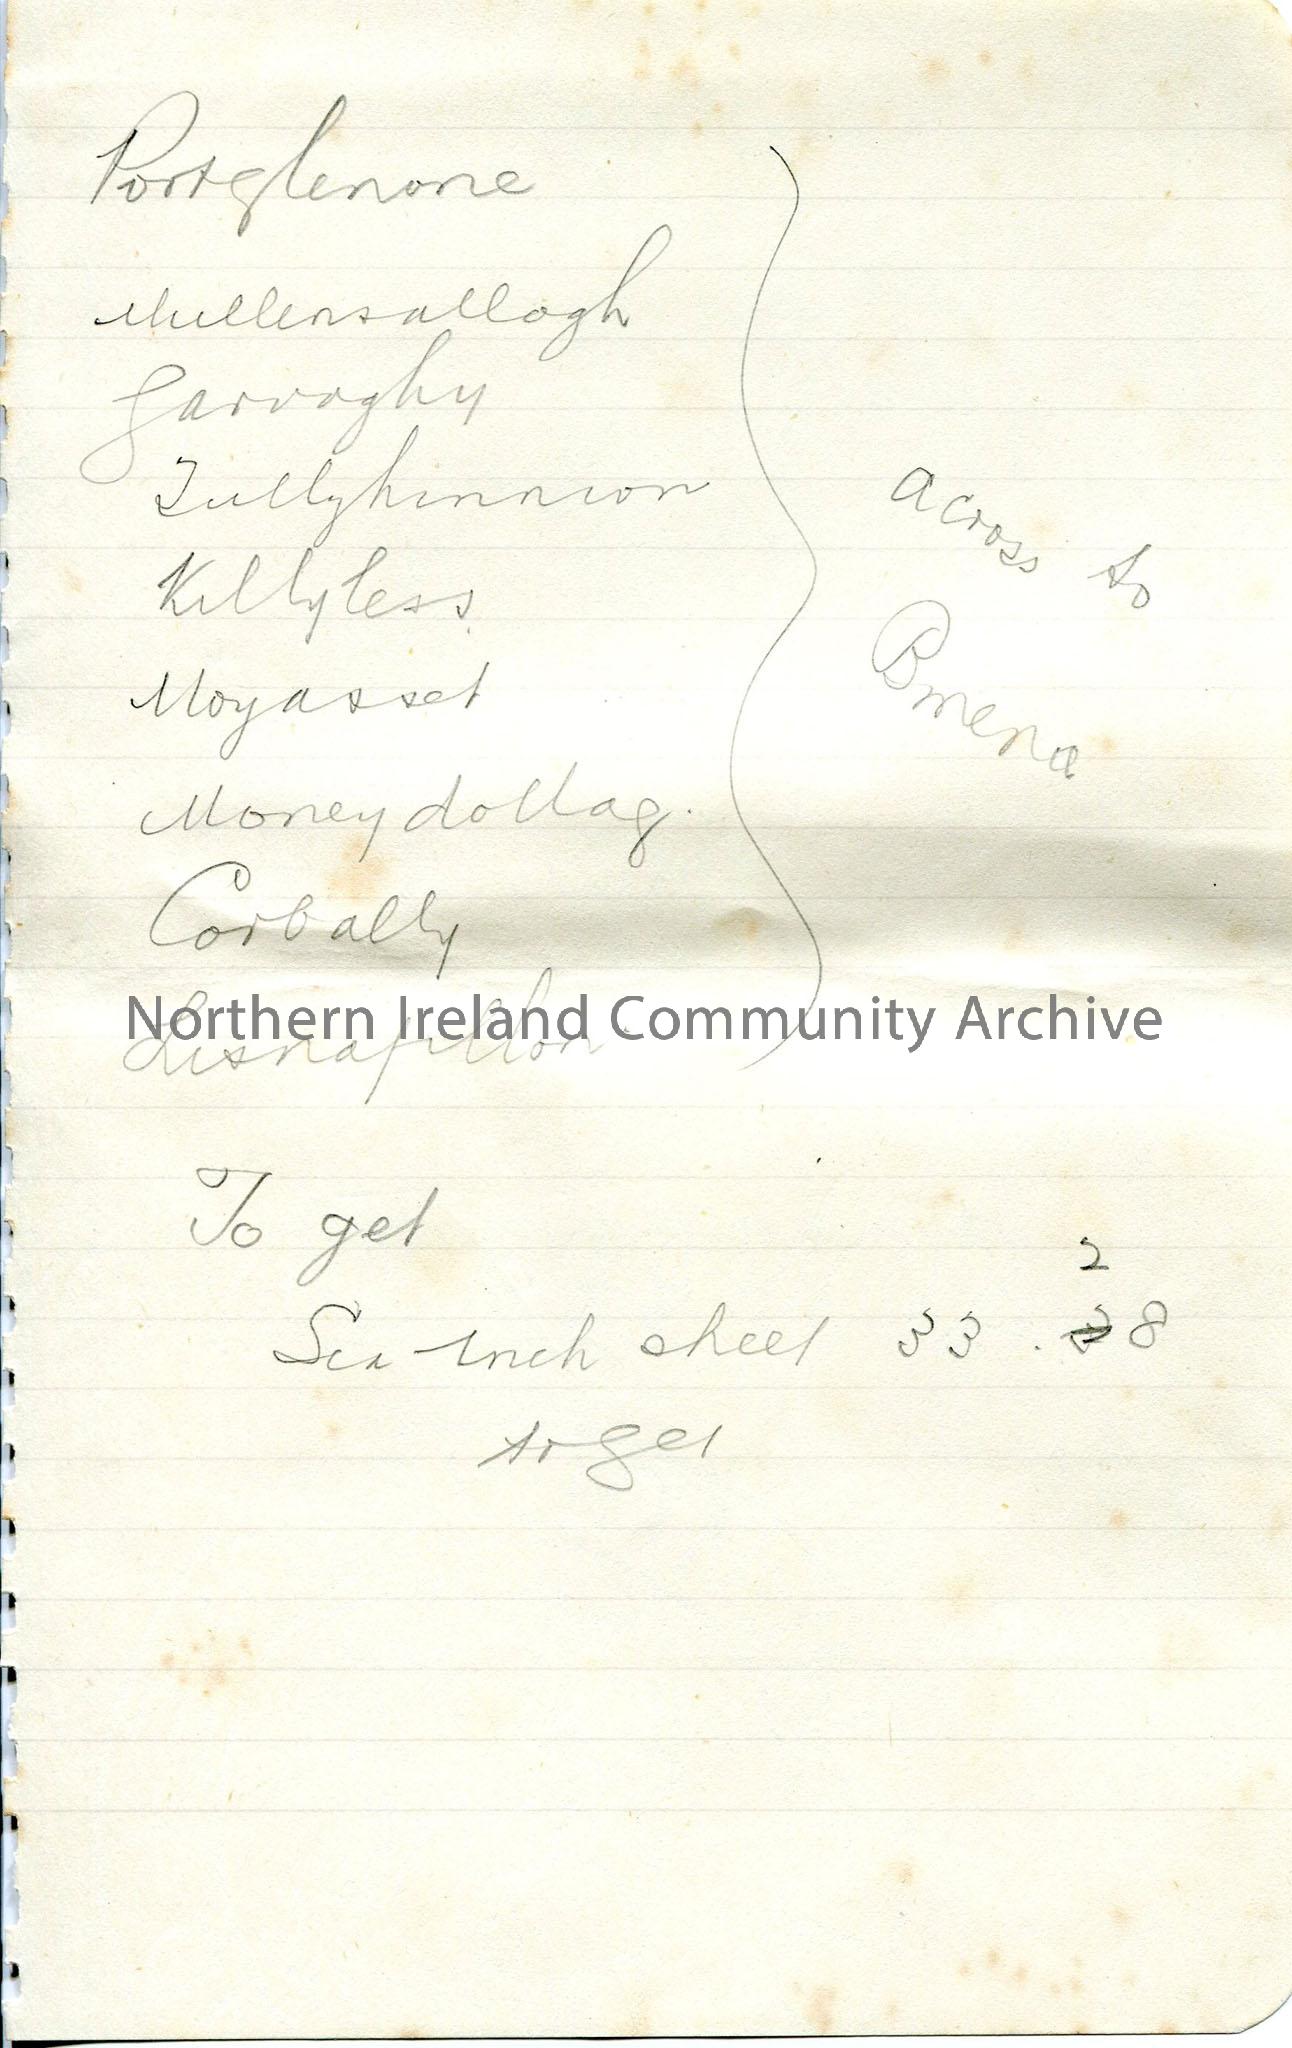 Portglenone
Mullensallogh
Garvaghy
Tullyhinnion
Killyless
Moyasset
Moneydollag.
Corbally
Lisnafillon
across to
Bmena
Northern Ireland Community Archive
To get
2
Six-inch sheet 33 . 28
to get